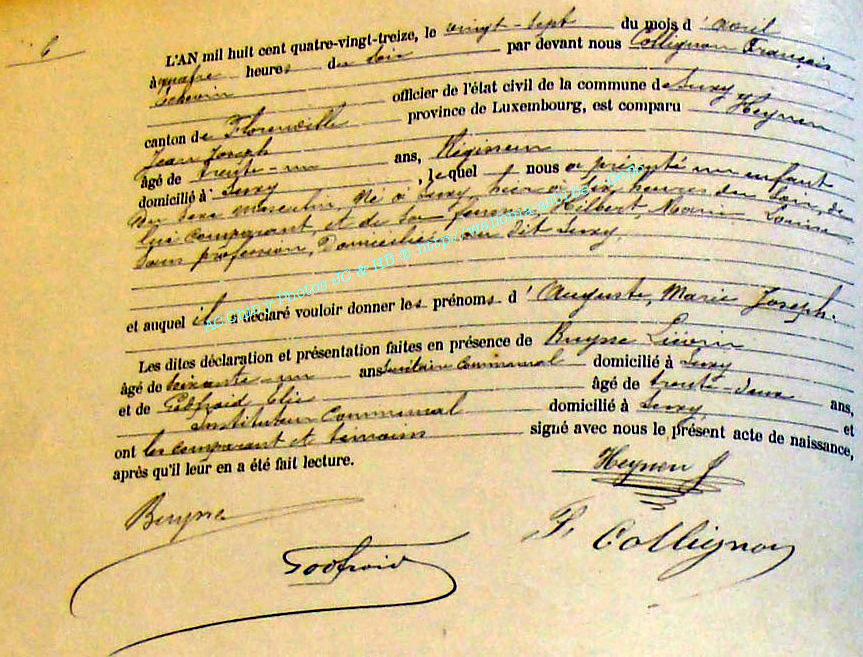 6
L'AN mil huit cent quatre-vingt-treize, le vingt-sept du mois d'avril
à quatre heures du soir par devant nous Collignon François
Echevin officier de l'état civil de la commune de Suxy
canton de Florenville province de Luxembourg, est comparu Heynen
Jean Joseph
âgé de trente-un ans, Régisseur
domicilié à Suxy, lequel nous a présenté un enfant
du sexe masculin, né à Suxy, hier à six heures du soir, de
lui comparant, et de sa femme, Hilbert, Marie Louise
sans profession, Domiciliée au dit Suxy,
et auquel il a déclaré vouloir donner les prénoms d'Auguste, Marie Joseph.
Les dites déclaration et présentation faites en présence de Buysse Liévin
âgé de soixante-un ans Secrétaire communal domicilié à Suxy
et de Godfroid Elie âgé de trente-deux ans,
Instituteur Communal domicilié à Suxy, et
ont les comparant et témoins signé avec nous le présent acte de naissance,
après qu'il leur en a été fait lecture.
Heynen J
Buysse
F. Collignon
Godfroid